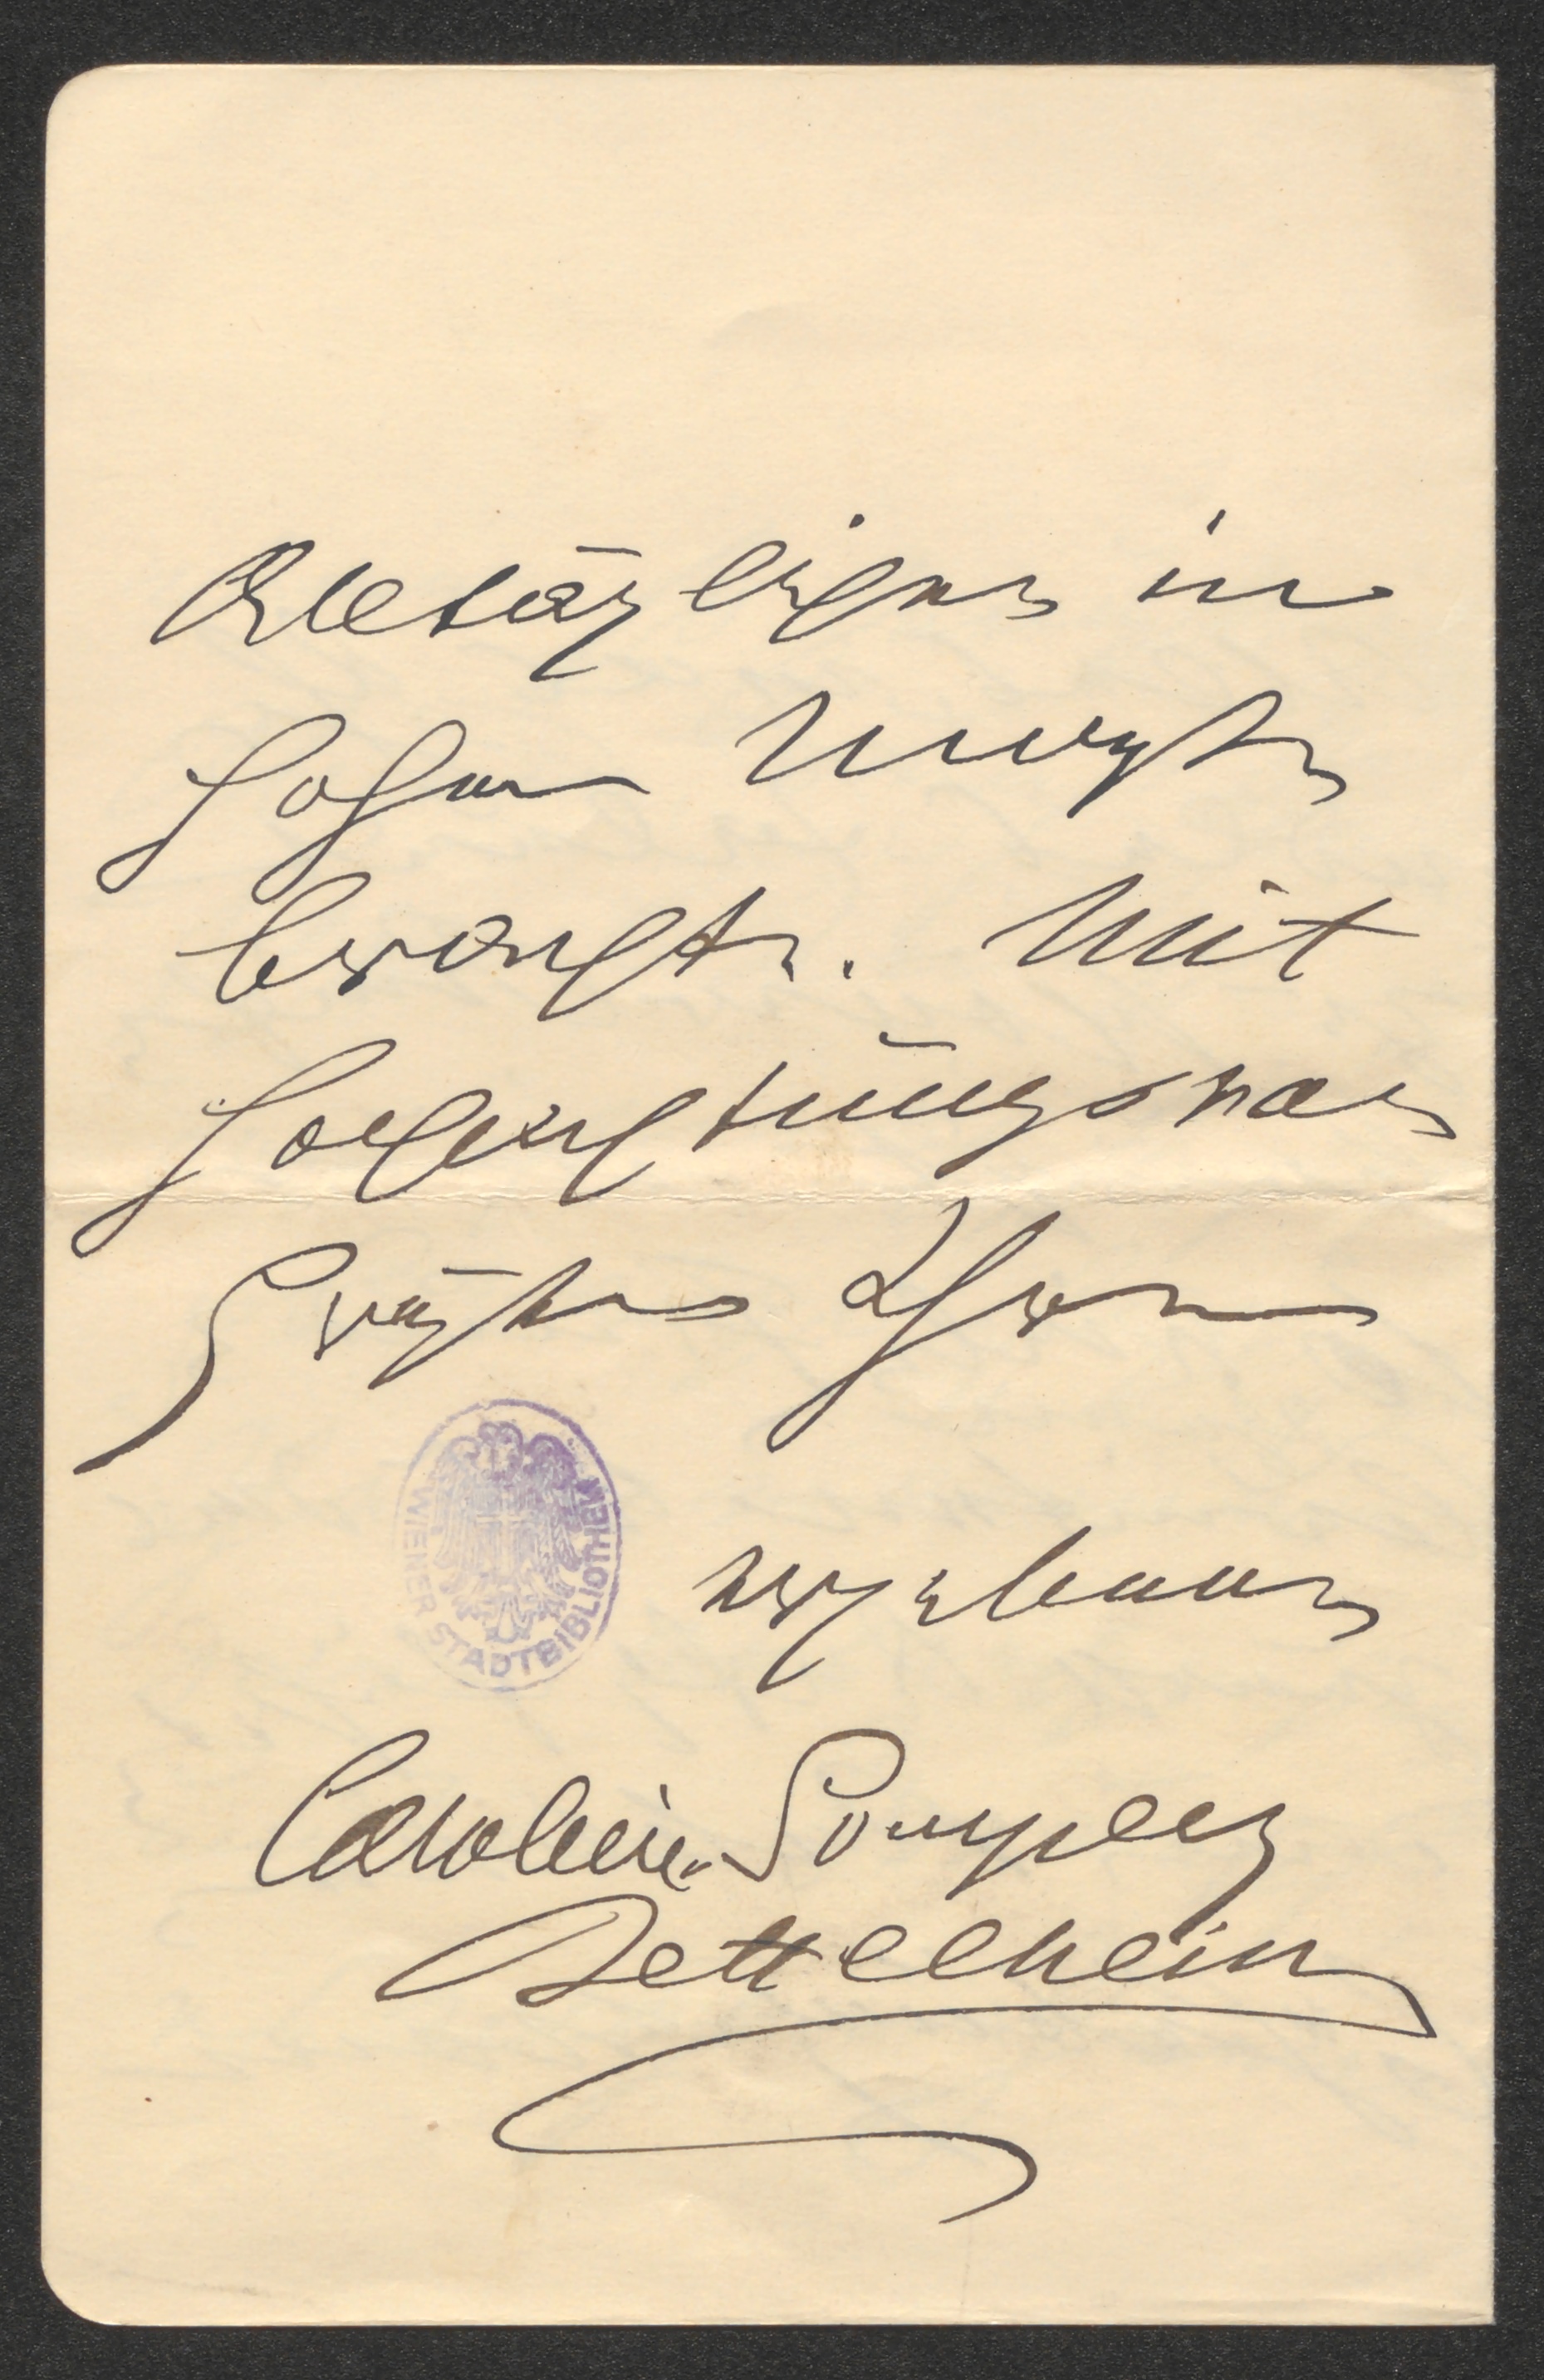 Alltäglichen in
hohen
brachte. Mit
hochachtungsvollen
Grüßen Ihre
ergebene
WIENER STADTBIBLIOTHEK
Caroline Gomperz
Bettelheim